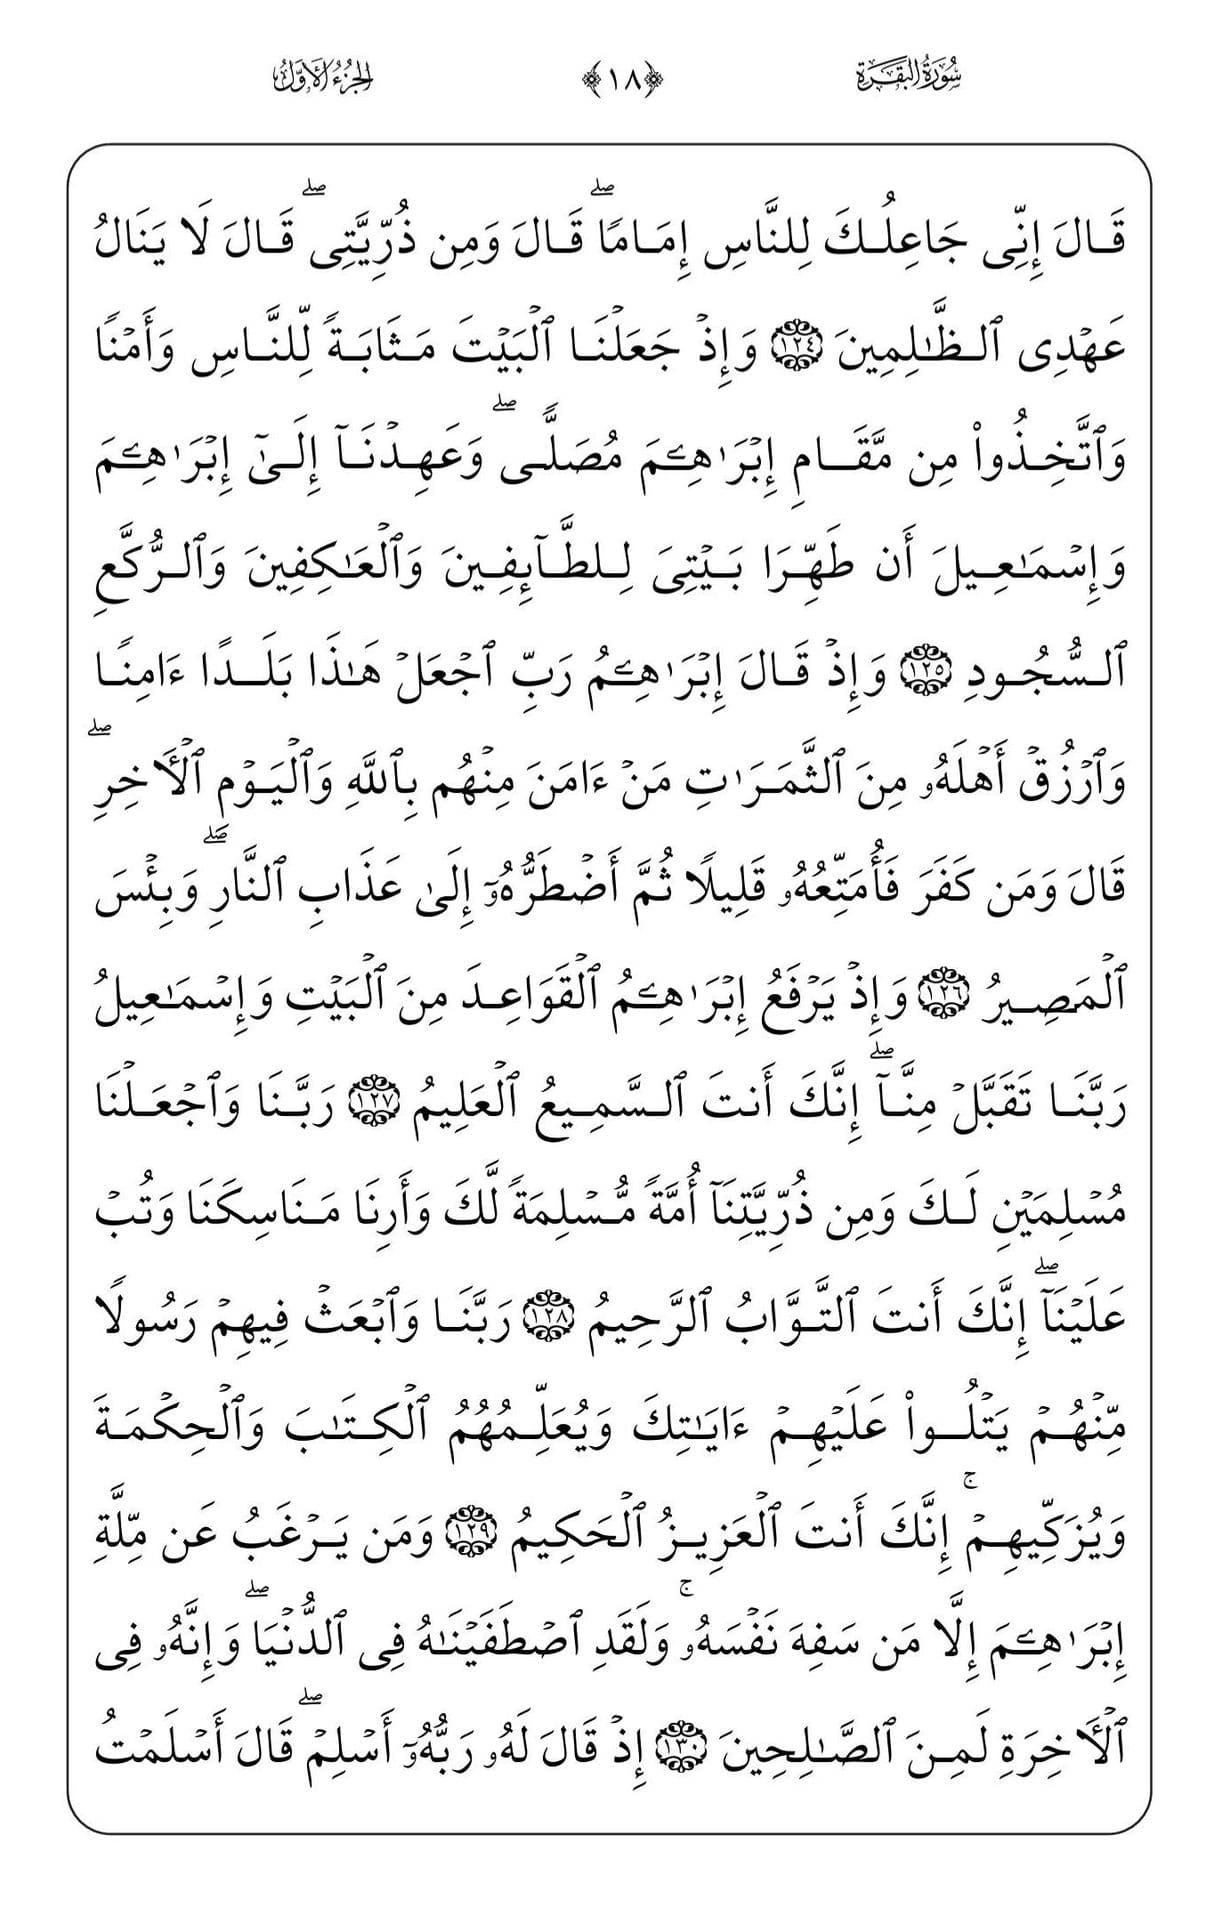 سُورَةُ البَقَرَةِ ﴿١٨﴾ الجُزْءُ الأَوَّلُ
قَالَ إِنِّى جَاعِلُكَ لِلنَّاسِ إِمَامًاۖ قَالَ وَمِن ذُرِّيَّتِىۖ قَالَ لَا يَنَالُ
عَهْدِى ٱلظَّـٰلِمِينَ ١٢٤ وَإِذْ جَعَلْنَا ٱلْبَيْتَ مَثَابَةً لِّلنَّاسِ وَأَمْنًا
وَٱتَّخِذُوا۟ مِن مَّقَامِ إِبْرَٰهِـۧمَ مُصَلًّىۖ وَعَهِدْنَآ إِلَىٰٓ إِبْرَٰهِـۧمَ
وَإِسْمَـٰعِيلَ أَن طَهِّرَا بَيْتِىَ لِلطَّآئِفِينَ وَٱلْعَـٰكِفِينَ وَٱلرُّكَّعِ
ٱلسُّجُودِ ١٢٥ وَإِذْ قَالَ إِبْرَٰهِـۧمُ رَبِّ ٱجْعَلْ هَـٰذَا بَلَدًا ءَامِنًا
وَٱرْزُقْ أَهْلَهُۥ مِنَ ٱلثَّمَرَٰتِ مَنْ ءَامَنَ مِنْهُم بِٱللَّهِ وَٱلْيَوْمِ ٱلْـَٔاخِرِۖ
قَالَ وَمَن كَفَرَ فَأُمَتِّعُهُۥ قَلِيلًا ثُمَّ أَضْطَرُّهُۥٓ إِلَىٰ عَذَابِ ٱلنَّارِۖ وَبِئْسَ
ٱلْمَصِيرُ ١٢٦ وَإِذْ يَرْفَعُ إِبْرَٰهِـۧمُ ٱلْقَوَاعِدَ مِنَ ٱلْبَيْتِ وَإِسْمَـٰعِيلُ
رَبَّنَا تَقَبَّلْ مِنَّآۖ إِنَّكَ أَنتَ ٱلسَّمِيعُ ٱلْعَلِيمُ ١٢٧ رَبَّنَا وَٱجْعَلْنَا
مُسْلِمَيْنِ لَكَ وَمِن ذُرِّيَّتِنَآ أُمَّةً مُّسْلِمَةً لَّكَ وَأَرِنَا مَنَاسِكَنَا وَتُبْ
عَلَيْنَآۖ إِنَّكَ أَنتَ ٱلتَّوَّابُ ٱلرَّحِيمُ ١٢٨ رَبَّنَا وَٱبْعَثْ فِيهِمْ رَسُولًا
مِّنْهُمْ يَتْلُوا۟ عَلَيْهِمْ ءَايَـٰتِكَ وَيُعَلِّمُهُمُ ٱلْكِتَـٰبَ وَٱلْحِكْمَةَ
وَيُزَكِّيهِمْۚ إِنَّكَ أَنتَ ٱلْعَزِيزُ ٱلْحَكِيمُ ١٢٩ وَمَن يَرْغَبُ عَن مِّلَّةِ
إِبْرَٰهِـۧمَ إِلَّا مَن سَفِهَ نَفْسَهُۥۚ وَلَقَدِ ٱصْطَفَيْنَـٰهُ فِى ٱلدُّنْيَاۖ وَإِنَّهُۥ فِى
ٱلْـَٔاخِرَةِ لَمِنَ ٱلصَّـٰلِحِينَ ١٣٠ إِذْ قَالَ لَهُۥ رَبُّهُۥٓ أَسْلِمْۖ قَالَ أَسْلَمْتُ